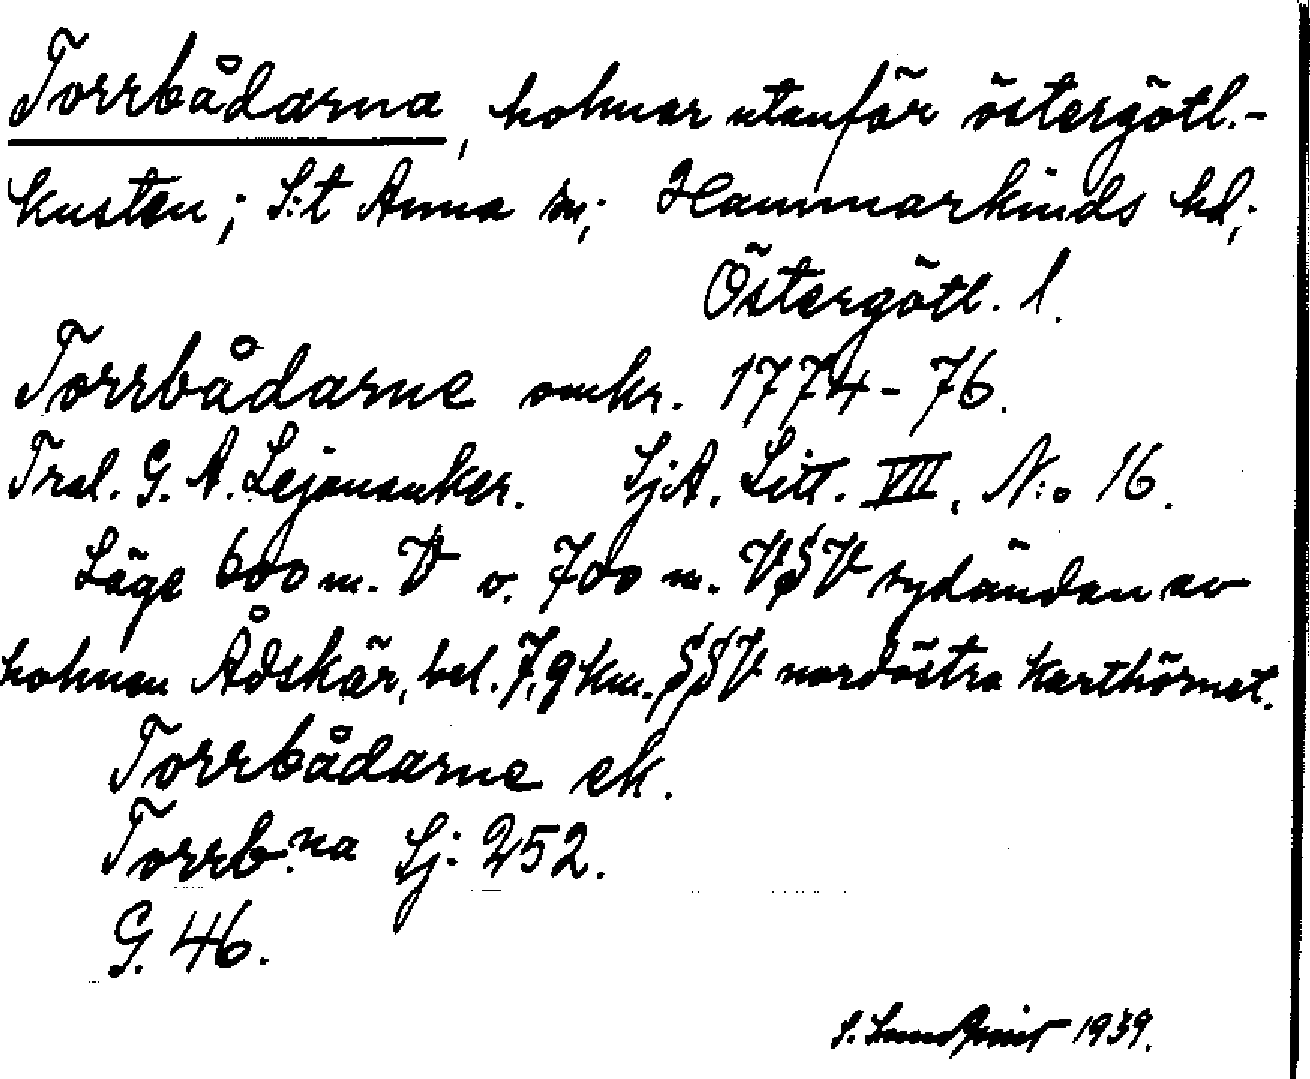 Torrbådarna, holmar utanför östergötl.-
kusten; S:t Anna sn; Hammarkinds hd;
Östergötl. l.
Torrbådarne omkr. 1774-76.
Fral. G. A. Lejonanker. SjA. Litt. VII. N:o 16.
Läge 600 m. V o. 700 m. VSV sydändan av
holmen Ådskär, bel. 7,9 km. SSV nordöstra karthörnet.
Torrbådarne ek.
Torrb:na Sj: 252.
G. 46.
S. Lundqvist 1939.